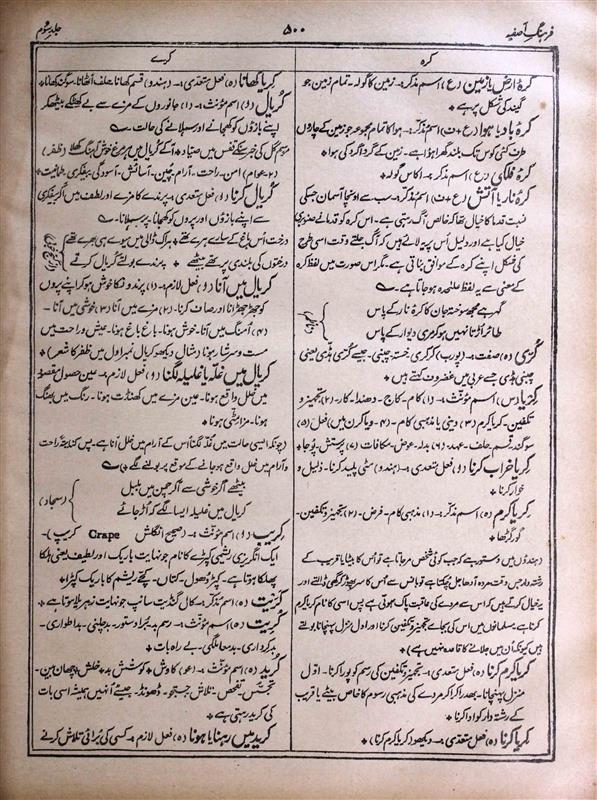 فرہنگِ آصفیہ
۵۰۰
جلد سوم
کرہ
کرے
کرۂ ارض یا زمین (ع) اسم مذکر۔ زمین کا گولہ۔ تمام زمین جو
گیند کی شکل پر ہے ٭
کرۂ باد یا ہوا (ع + ف) اسم مذکر۔ ہوا کا تمام مجموعہ جو زمین کے چاروں
طرف کئی کوس تک بلند گھرا ہوا ہے۔ زمین کے گرد اگرد کی ہوا ٭
کرۂ فلکی (ع) اسم مذکر۔ اکاس گولہ ٭
کرۂ نار یا آتش (ع + ف) اسم مذکر۔ سب سے اونچا آسمان جسکی
نسبت قدما کا خیال تھا کہ خالص آگ رہتی ہے۔ اس کرہ کو قدما نے صنوبری
خیال کیا ہے اور دلیل اُس پر یہ لاتے ہیں کہ آگ جلتے وقت اسی طرح
کی شکل اپنے کرہ کے موافق بناتی ہے۔ مگر اس صورت میں لفظ کرہ
کے معنی سے یہ لفظ علیحدہ ہو جاتا ہے ؎
گھر ہے مجھ سوختہ جان کا کرۂ نار کے پاس
طائر اڑتا نہیں ہو کر مری دیوار کے پاس
کُرّی (ہ) صفت۔ (پورب) کرکری۔ خستہ۔ چبنی۔ جیسے کُرّی ہڈی یعنی
چبنی ہڈی جسے عربی میں غضروف کہتے ہیں ٭
کِریا (س) اسم مؤنث۔ (۱) کام۔ کاج۔ دھندا۔ کار۔ (۲) تجہیز و
تکفین۔ کریا کرم (۳) دینی یا مذہبی کام۔ (۴۔ ویاکرن میں) فعل (۵)
سوگند۔ قسم۔ حلف۔ عہد۔ (۶) بدلہ۔ عوض۔ مکافات (۷) پرستش۔ پُوجا ٭
کریا خراب کرنا (و) فعل متعدی۔ (ہندو) مٹی پلید کرنا۔ ذلیل و
خوار کرنا ٭
کِریا کرم (ہ) اسم مذکر۔ (۱) مذہبی کام۔ فرض۔ (۲) تجہیز و تکفین۔
گور گڑھا ٭
(ہندوں میں دستور ہے کہ جب کوئی شخص مرجاتا ہے تو اُس کا بیٹا یا قریب کے
رشتہ دار جس وقت مردہ آدھا جل چکتا ہے تو بانس سے اُس کا سر پھوڑ کر گھی ڈالتے اور
یہ خیال کرتے ہیں کہ اس سے مردے کی عاقبت پاک ہوتی ہے پس اسی کا نام کریا کرم
کرنا ہے۔ مسلمانوں میں اس کی بجائے تجہیز و تکفین کرنا اور اول منزل پہنچانا بولتے
ہیں کیونکہ اُن میں جلانے کا قاعدہ نہیں ہے)
کریا کرم کرنا (ہ) فعل متعدی۔ تجہیز و تکفین کی رسم کو پورا کرنا۔ اوّل
منزل پہنچانا۔ بھدرا کرا کر مردے کی مذہبی رسوم کا خاص بیٹے یا قریب
کے رشتہ دار کو ادا کرنا ٭
کِریا کرنا (ہ) فعل متعدی۔ دیکھو (کریا کرم کرنا) ٭
کِریا کھانا (ہ) فعل متعدی۔ (ہندو) قسم کھانا۔ حلف اٹھانا۔ سوگند کھانا ٭
کُریال (و) اسم مؤنث۔ (۱) جانوروں کے مزے سے بے کھٹکے بیٹھکر
اپنے بازؤں کو کھجانے اور سہلانے کی حالت ؎
موسمِ گل کی خبر سنکے قفس میں صیاد ٭ آ گے کُریال میں ہر مرغِ خوش آہنگ کھلا (ظفر)
(۲۔ عوام) امن۔ راحت۔ آرام۔ چین۔ آسائش۔ آسودگی۔ بیفکری۔ طمانیت ٭
کُریال کرنا (و) فعل متعدی۔ پرندے کا مزے اور لطف میں آکر بیفکری
سے اپنے بازؤں اور پروں کو کھجانا۔ پر سہلانا ؎
درخت اُس باغ کے سارے ہرے تھے ٭ ہراک ڈالی میں میوے ہی بھرے تھے
درختوں کی بلندی پر تھے بیٹھے ٭ پرندے بولتے کُریال کرتے
کُریال میں آنا (و) فعل لازم۔ (۱) پرندوں کا خوش ہو کر اپنے پروں
کو جھڑجھڑانا اور صاف کرنا۔ (۲) مزے میں آنا (۳) خوشی میں آنا۔
(۴) اُمنگ میں آنا۔ خوش ہونا۔ باغ باغ ہونا۔ عیش و راحت میں
مست و سرشار ہونا (مثال دیکھو کریال نمبر اول میں ظفر کا شعر) ٭
کُریال میں غلّہ یا غلیلہ لگنا (و) فعل لازم۔ عین حصولِ مقصود
میں خلل واقع ہونا۔ عین مزے میں کھنڈت ہونا۔ رنگ میں بھنگ
ہونا۔ مزا کرکرا ہونا ٭
(چونکہ ایسی حالت میں غلّہ لگنا اُس کے آرام میں خلل لانا ہے۔ پس کنایتہً راحت
و آرام میں خلل واقع ہو جانے کے موقع پر بولنے لگے) ؎
بیٹھے اگر خوشی سے آکر چمن میں بلبل
کُریال میں غلیلہ ایسا لگے کہ اُڑ جائے
(سجاد)
کریپ (و) اسم مؤنث۔ (صحیح انگلش Crape کریپ)۔
ایک انگریزی ریشمی کپڑے کا نام جو نہایت باریک اور لطیف یعنی ہلکا
پھلکا ہوتا ہے۔ کپڑ دھول۔ کتاں۔ کچّے ریشم کا باریک کپڑا ٭
کریت (ہ) اسم مذکر۔ کال گنڈیت سانپ جو نہایت زہریلا ہوتا ہے ٭
کُریت (ہ) اسم مؤنث۔ رسم بد۔ بُرا دستور۔ بدچلنی۔ بداطواری۔
بدکرداری۔ بدمعاملگی۔ بے راہ بات ٭
کُرید (ہ) اسم مؤنث۔ (عو) کاوش ٭ کوشش بد ٭ خلش۔ چھان بین۔
تجسّس۔ تفحّص۔ تلاش۔ جستجو۔ ڈھونڈ۔ جیسے اُنہیں ہمیشہ اسی بات
کی کرید رہتی ہے ٭
کُرید میں رہنا یا ہونا (ہ) فعل لازم۔ کسی کی بُرائی تلاش کرنے